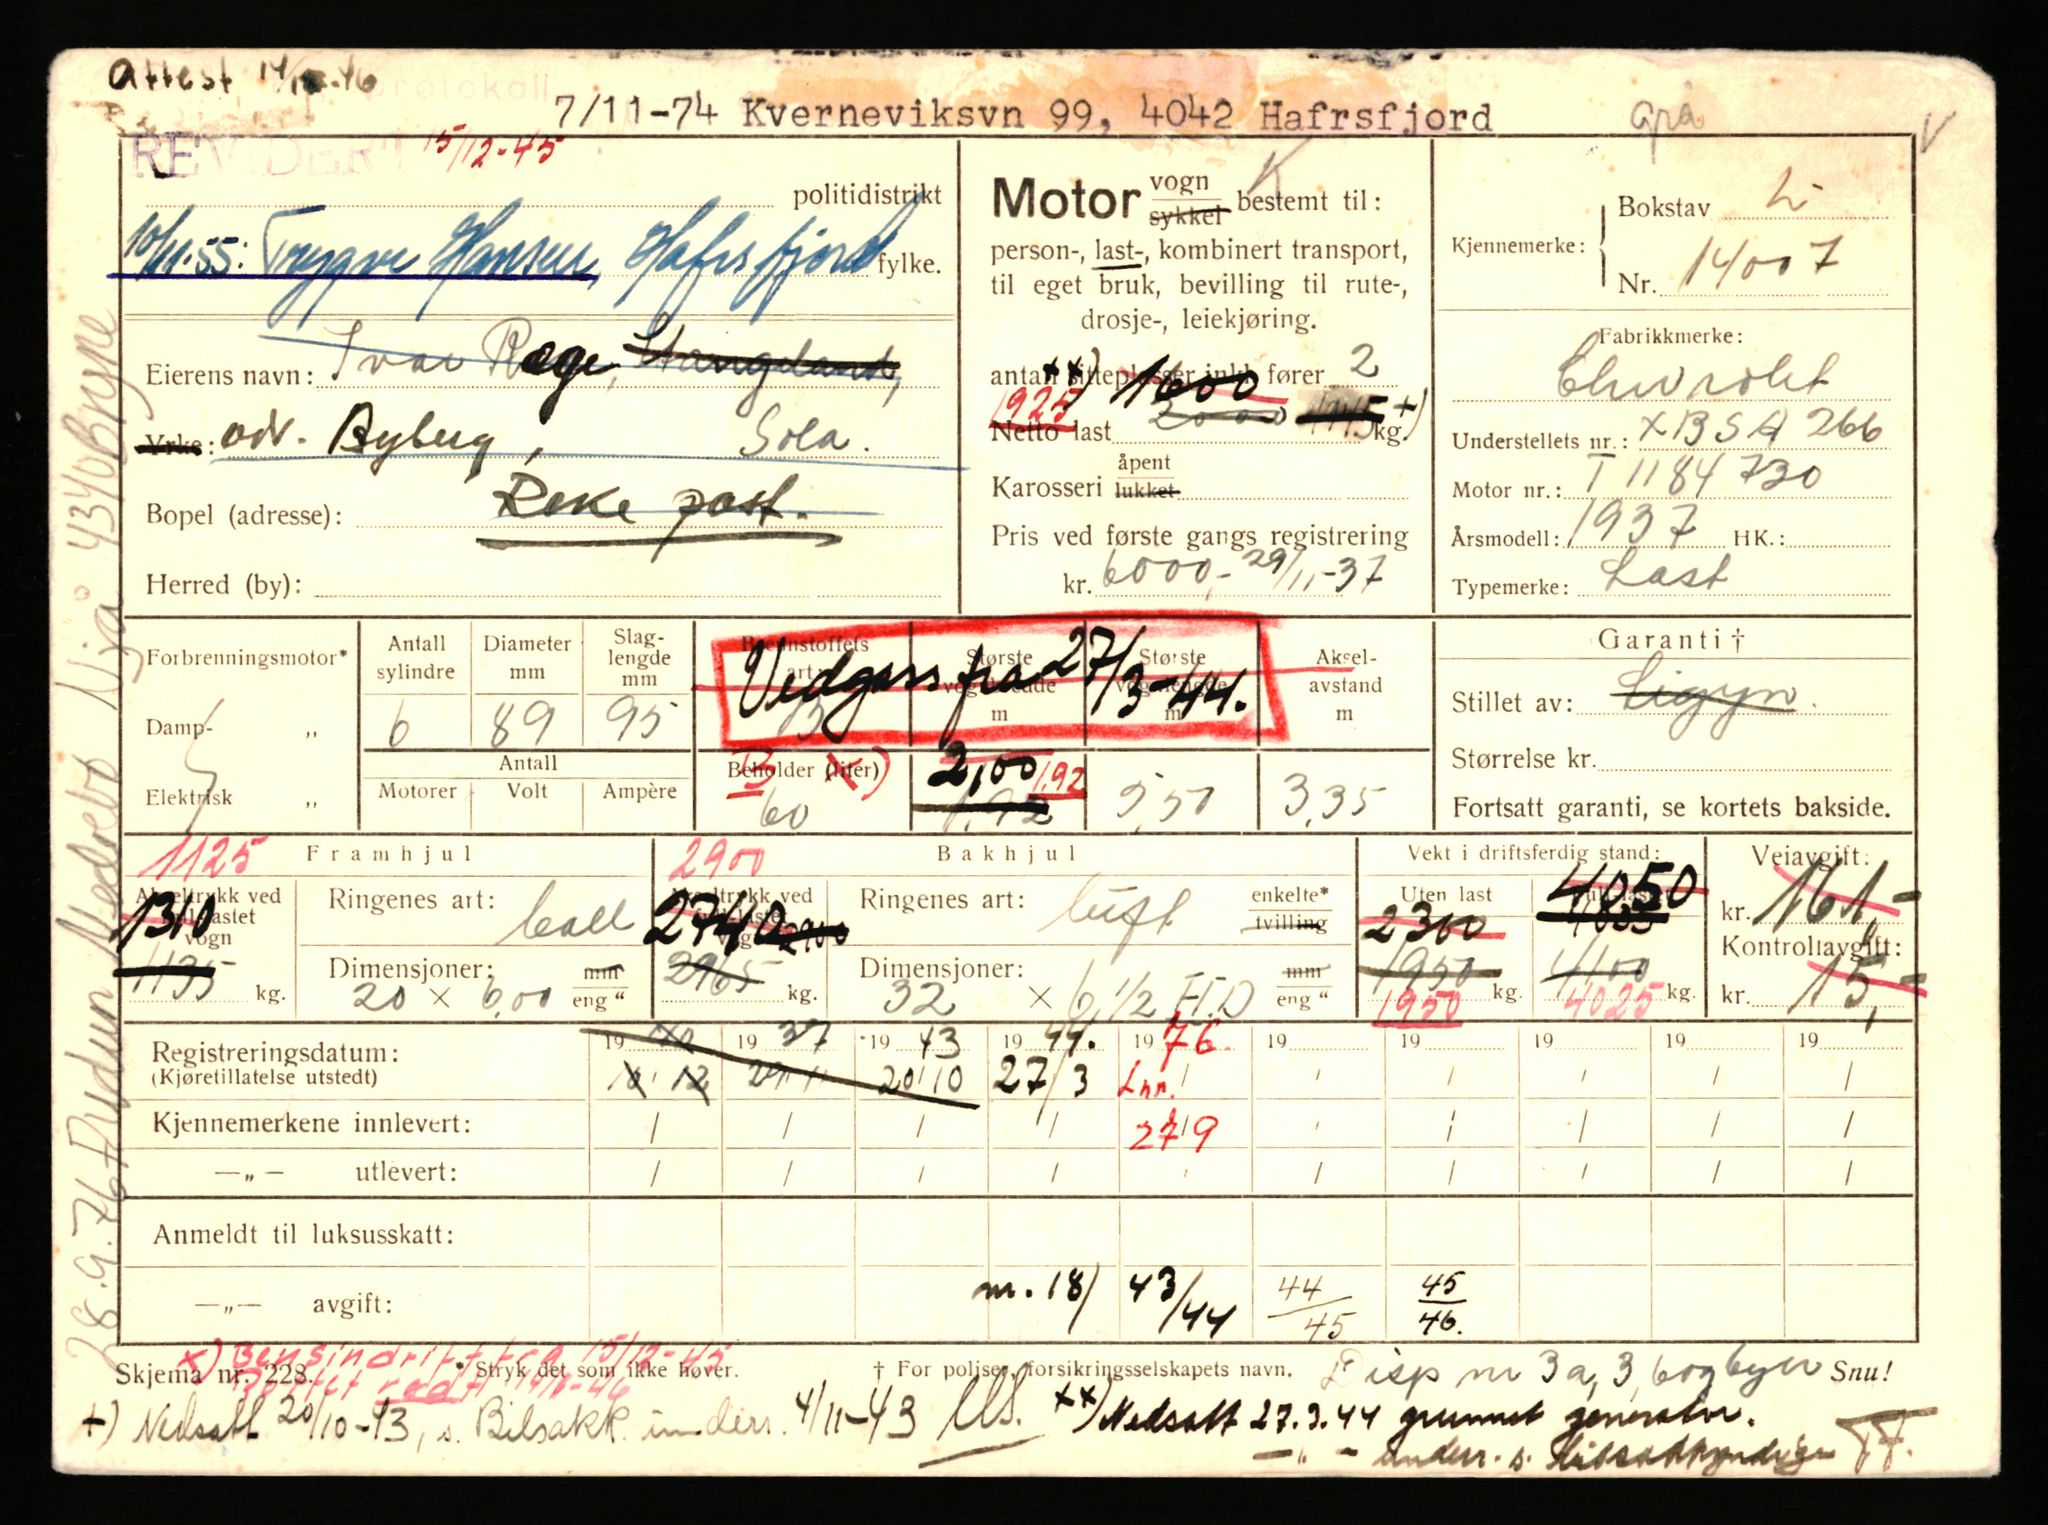 Attest
7/11-74 Kverneviksvn 99, 4042 Hafrsfjord
Grå
V
REVIDERT 15/12-45
politidistrikt
10/11-55: Trygve Hansen, Hafrsfjord fylke.
Eierens navn: Ivar Rege,
Yrke: adr. Byberg, Sola.
Bopel (adresse): Reke post.
Herred (by):
Motor vogn sykkel bestemt til:
person-, last-, kombinert transport,
til eget bruk, bevilling til rute-,
drosje-, leiekjøring.
antall sitteplasser inkl. fører 2
xx) 1600
1925
Netto last 2000 1745 kg. +)
Karosseri åpent lukket
Pris ved første gangs registrering
kr. 6000,- 29/11-37
Kjennemerke: Bokstav L
Nr. 14007
Fabrikkmerke:
Chevrolet
Understellets nr.: XBSA 266
Motor nr.: T 1184730
Årsmodell: 1937 HK.:
Typemerke: Last
Forbrenningsmotor*
Damp- „
Elektrisk „
Antall sylindre 6
Diameter mm 89
Slaglengde mm 95
Antall
Motorer Volt Ampère
Brennstoffets art: B
Vedgass fra 27/3-44.
Største vognbredde m
Største vognlengde m
Aksel-
avstand
m
B x)
Beholder (liter) 60
2,00 1.92
1.92
5,50
3.35
Garanti †
Stillet av: Sigyn.
Størrelse kr.
Fortsatt garanti, se kortets bakside.
1125 Framhjul
Akseltrykk ved fullastet vogn
1310
1135 kg.
Ringenes art:
Dimensjoner: 20 x 6,00 mm eng "
2900 Bakhjul
Akseltrykk ved fullastet vogn
2740 2900
2965 kg.
Ringenes art: luft enkelte* tvilling
Dimensjoner: 32 x 6 1/2 H.D mm eng "
Vekt i driftsferdig stand:
Uten last
2300
1950
1950 kg.
Full lastet
4050
4100
4025 kg.
Veiavgift:
kr. 161,-
Kontrollavgift:
kr. 15,-
Registreringsdatum: 19 19 37 19 43 19 44. 19 76. 19 19 19 19 19
(Kjøretillatelse utstedt) 29/11 20/10 27/3 Lnr.
Kjennemerkene innlevert: 27/9
—„— utlevert:
Anmeldt til luksusskatt:
—„— avgift: nr. 18/ 43/44 44/45 45/46.
x) Bensindrift fra 15/12-45
Skjema nr. 228. * Stryk det som ikke høver. † For poliser, forsikringsselskapets navn. Disp nr 3a, 3, Snu!
+) Nedsatt 20/10-43, s. Bilsakk. underr. 4/11-43 xx) Nedsatt 27.3.44 grunnet generator.
—„— underr. s. bilsakkyndige
28.9.76 Audun Nedrebø Njå 4340 Bryne